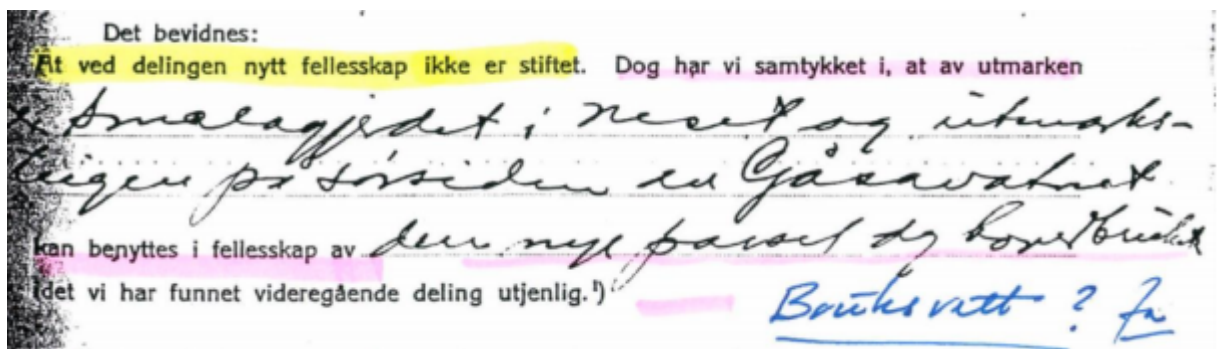 Det bevidnes:
At ved delingen nytt fellesskap ikke er stiftet. Dog har vi samtykket i, at av utmarken
Smalagjerdet i Neset og utmarks-
teigen på sørsiden av Gåsavatnet
kan benyttes i fellesskap av den nye parsel og hovedbruket
idet vi har funnet videregående deling utjenlig.¹)
Bruksrett? Ja